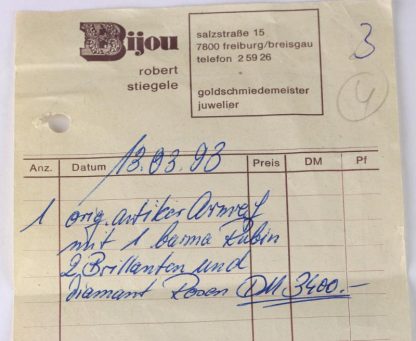 Bijou
robert
stiegele
salzstraße 15
7800 freiburg/breisgau
telefon 2 59 26
goldschmiedemeister
juwelier
3
4
Anz. Datum 13.03.93 Preis DM Pf
1 orig. antiker Armreif
mit 1 barma Rubin
2 Brillanten und
diamant Rosen DM 3400.-